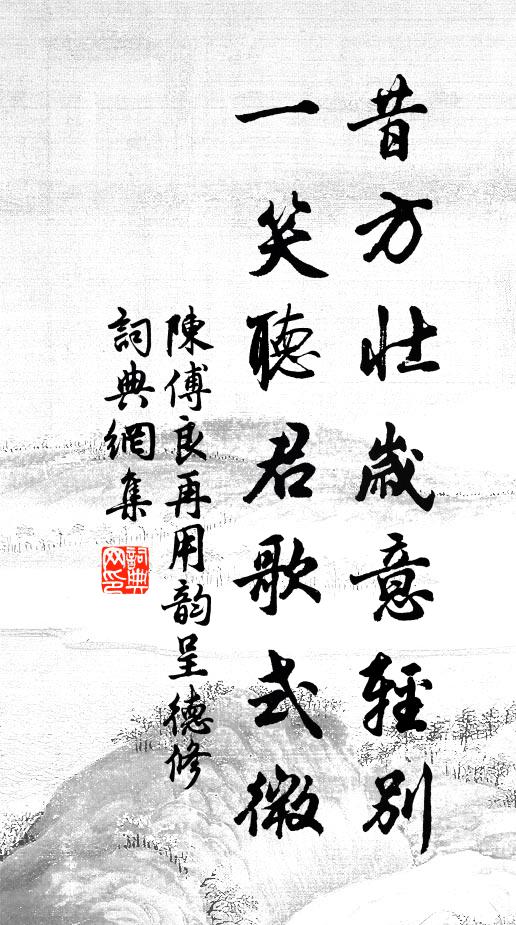 昔方壯歲意輕別
一笑聽君歌式微
陳傅良再用韵呈德修
詞典網集
詞典網印